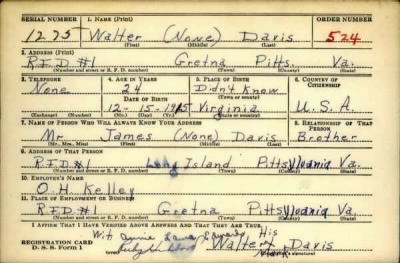 SERIAL NUMBER 1. NAME (Print) ORDER NUMBER
1275 Walter (None) Davis 524
(First) (Middle) (Last)
2. ADDRESS (Print)
R.F.D #1 Gretna Pitts. Va.
(Number and street or R. F. D. number) (Town) (County) (State)
3. TELEPHONE 4. AGE IN YEARS 5. PLACE OF BIRTH 6. COUNTRY OF CITIZENSHIP
None 24 Didn't Know
DATE OF BIRTH (Town or county)
12-15-1915 Virginia U.S.A.
(Exchange) (Number) (Mo.) (Day) (Yr.) (State or country)
7. NAME OF PERSON WHO WILL ALWAYS KNOW YOUR ADDRESS 8. RELATIONSHIP OF THAT PERSON
Mr James (None) Davis Brother
(Mr., Mrs., Miss) (First) (Middle) (Last)
9. ADDRESS OF THAT PERSON
R.F.D #1 Long Island Pittsylvania Va.
(Number and street or R. F. D. number) (Town) (County) (State)
10. EMPLOYER'S NAME
O.H. Kelley
11. PLACE OF EMPLOYMENT OR BUSINESS
R.F.D #1 Gretna Pittsylvania Va.
(Number and street or R. F. D. number) (Town) (County) (State)
I AFFIRM THAT I HAVE VERIFIED ABOVE ANSWERS AND THAT THEY ARE TRUE.
Wit Annie His
REGISTRATION CARD Walter Davis
D. S. S. Form 1 Mark